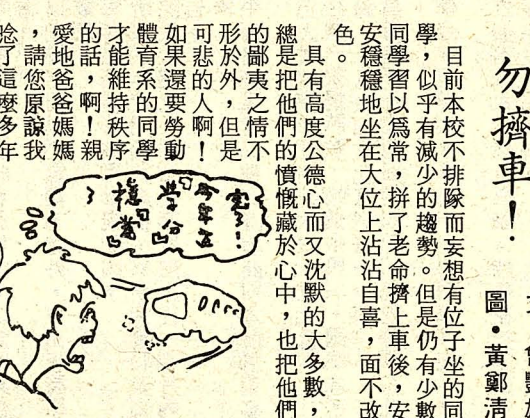 勿擠車！
圖・黃鄭清
目前本校不排隊而妄想有位子坐的同
學，似乎有減少的趨勢。但是仍有少數
同學習以爲常，拼了老命擠上車後，安
安穩穩地坐在大位上沾沾自喜，面不改
色。
具有高度公德心而又沈默的大多數，
總是把他們的憤慨藏於心中，也把他們
的鄙夷之情不
形於外，但是
可悲的人啊！
如果還要勞動
體育系的同學
才能維持秩序
的話，啊！親
愛地爸爸媽媽
，請您原諒我
唸了這麼多年
完了！
學分
了